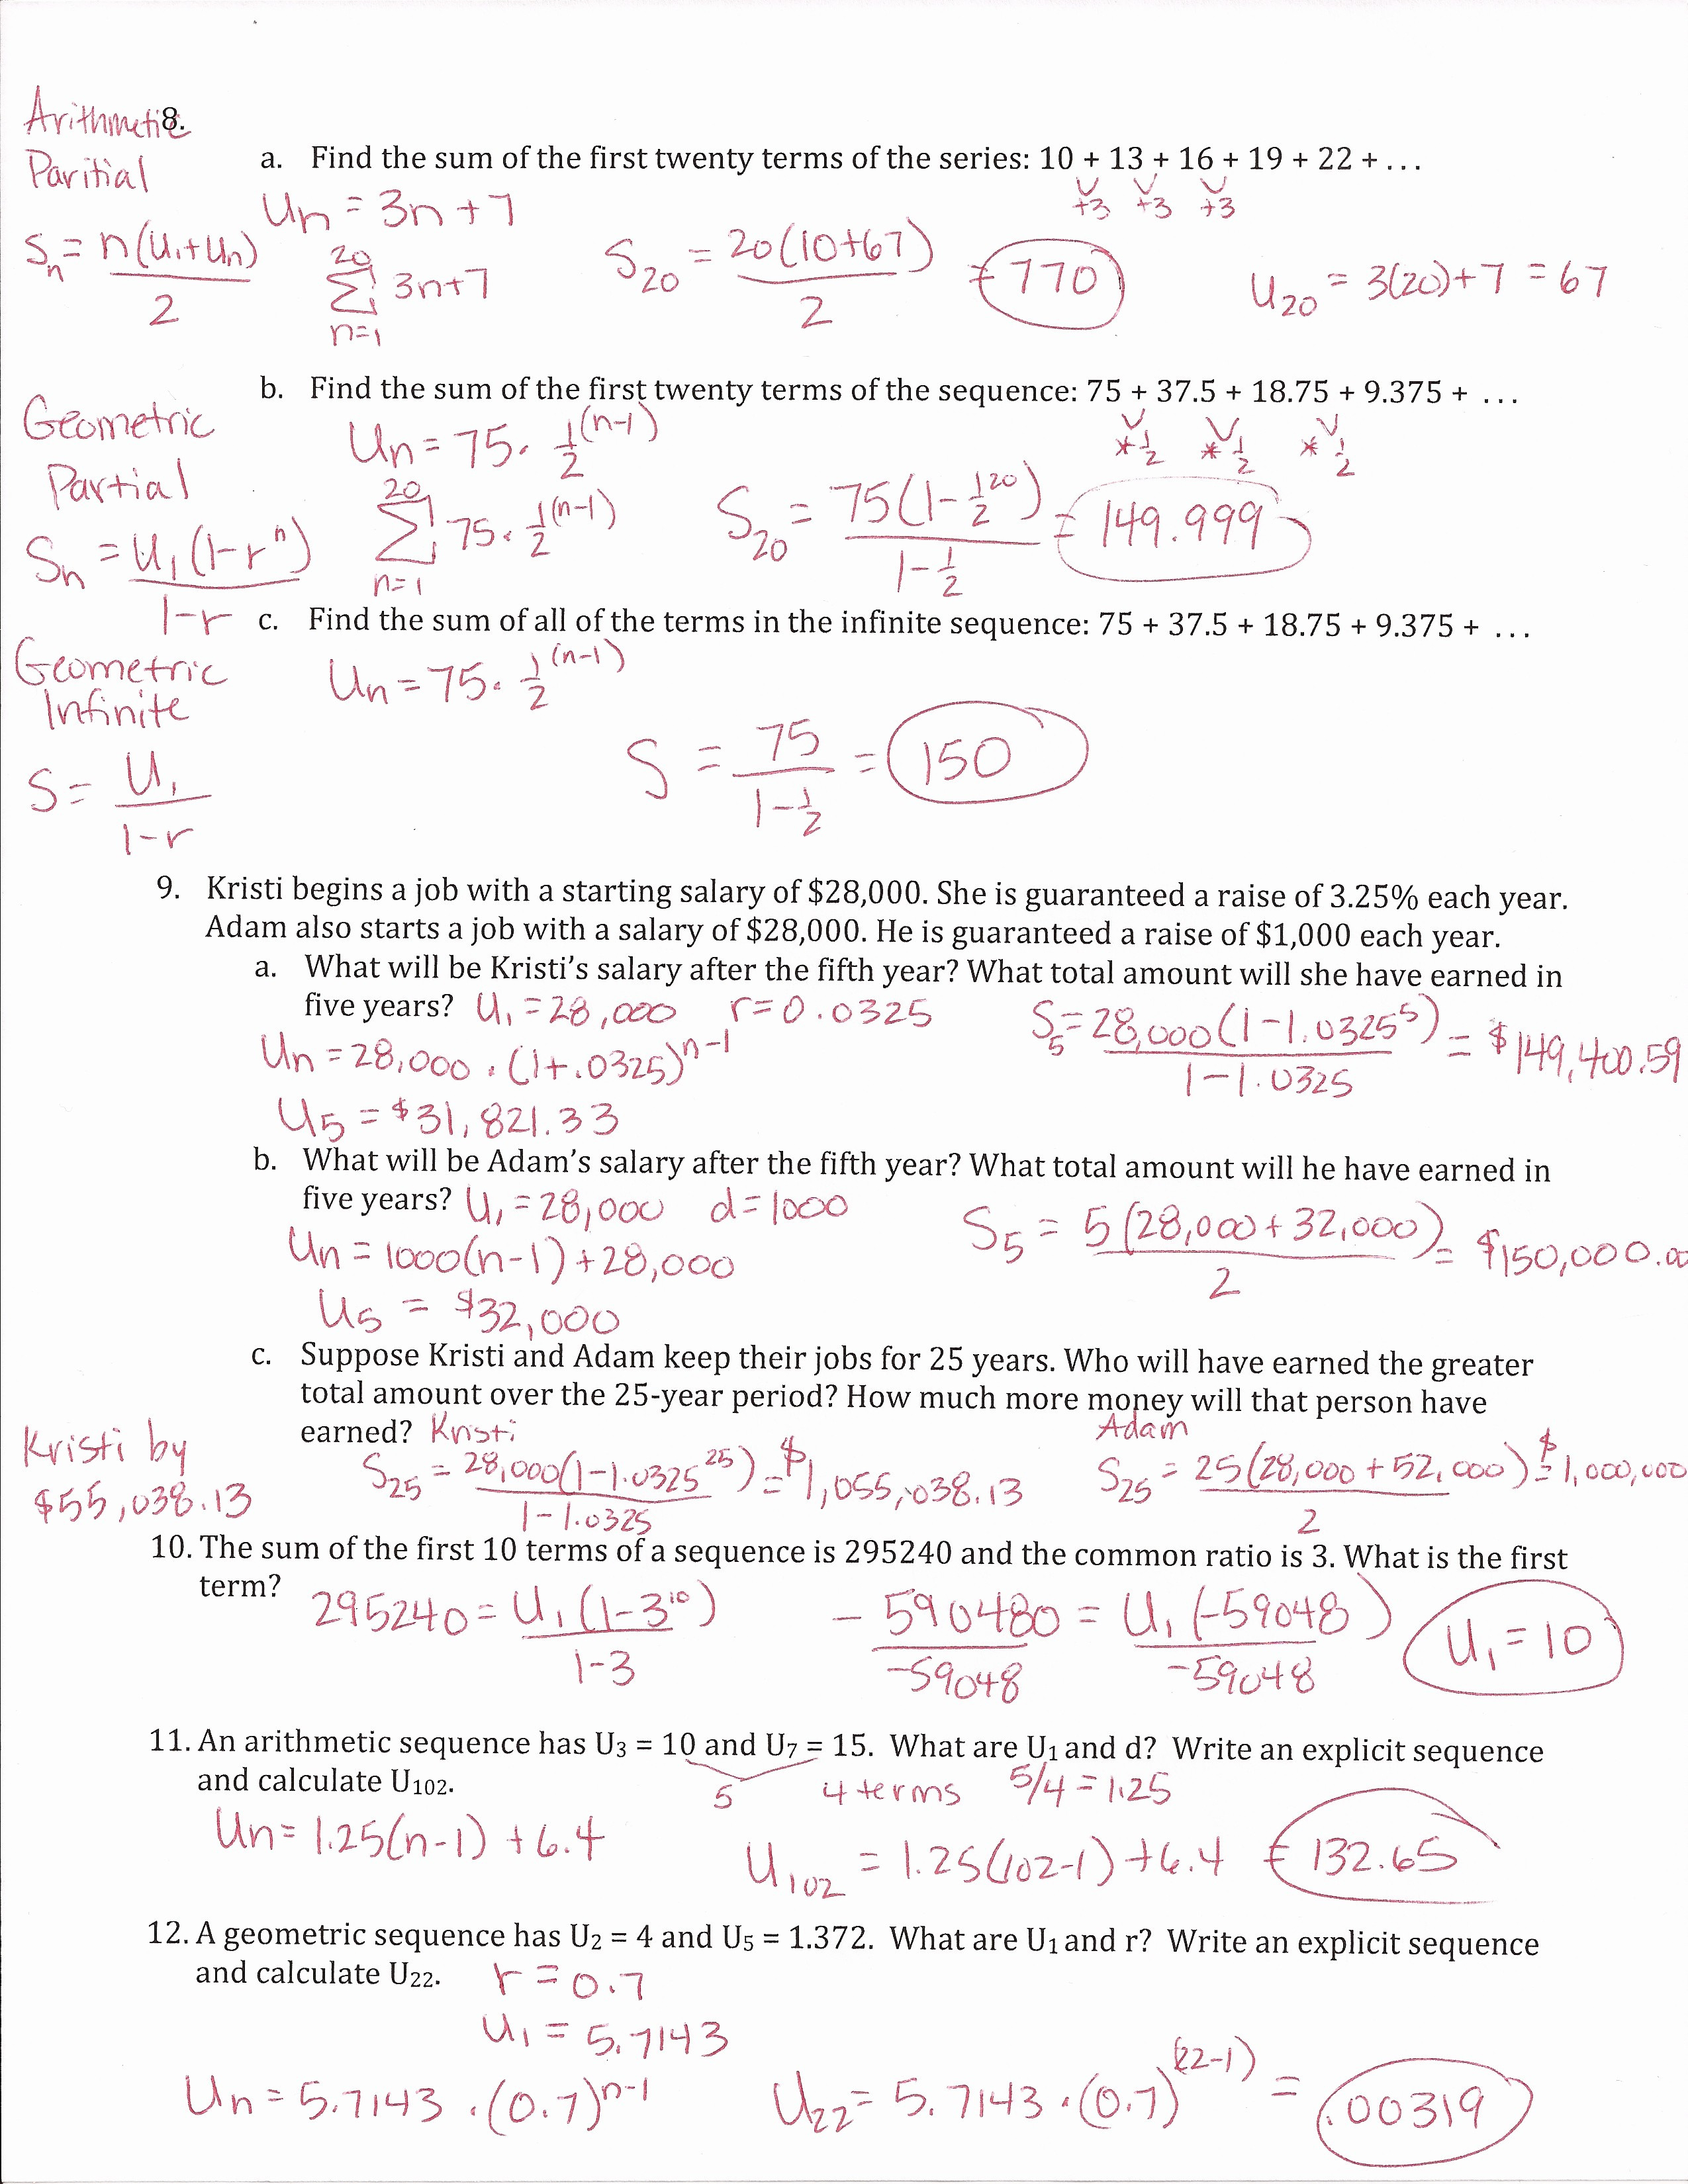 Arithmetic 8.
Paritial
a. Find the sum of the first twenty terms of the series: 10 + 13 + 16 + 19 + 22 + ...
+3 +3 +3
Un = 3n + 7
Sn = n(U1+Un) / 2
20 Σ n=1 3n+7
S20 = 20(10+67) / 2 = 770
U20 = 3(20)+7 = 67
b. Find the sum of the first twenty terms of the sequence: 75 + 37.5 + 18.75 + 9.375 + ...
*1/2 *1/2 *1/2
Geometric
Partial
Un = 75 · 1/2^(n-1)
20 Σ n=1 75 · 1/2^(n-1)
S20 = 75(1-1/2^20) / 1-1/2 = 149.999
Sn = U1(1-r^n) / 1-r
c. Find the sum of all of the terms in the infinite sequence: 75 + 37.5 + 18.75 + 9.375 + ...
Geometric
Infinite
Un = 75 · 1/2^(n-1)
S = U1 / 1-r
S = 75 / 1-1/2 = 150
9. Kristi begins a job with a starting salary of $28,000. She is guaranteed a raise of 3.25% each year.
Adam also starts a job with a salary of $28,000. He is guaranteed a raise of $1,000 each year.
a. What will be Kristi's salary after the fifth year? What total amount will she have earned in
five years? U1 = 28,000 r = 0.0325
S5 = 28,000(1-1.0325^5) / 1-1.0325 = $149,400.59
Un = 28,000 · (1+.0325)^n-1
U5 = $31,821.33
b. What will be Adam's salary after the fifth year? What total amount will he have earned in
five years? U1 = 28,000 d = 1000
S5 = 5(28,000+32,000) / 2 = $150,000.00
Un = 1000(n-1)+28,000
U5 = $32,000
c. Suppose Kristi and Adam keep their jobs for 25 years. Who will have earned the greater
total amount over the 25-year period? How much more money will that person have
earned? Kristi
Adam
Kristi by
$55,038.13
S25 = 28,000(1-1.0325^25) / 1-1.0325 = $1,055,038.13
S25 = 25(28,000+52,000) / 2 = $1,000,000
10. The sum of the first 10 terms of a sequence is 295240 and the common ratio is 3. What is the first
term?
295240 = U1(1-3^10) / 1-3
-590480 / -59048 = U1(-59048) / -59048
U1 = 10
11. An arithmetic sequence has U3 = 10 and U7 = 15. What are U1 and d? Write an explicit sequence
and calculate U102.
5 4 terms 5/4 = 1.25
Un = 1.25(n-1) + 6.4
U102 = 1.25(102-1)+6.4 = 132.65
12. A geometric sequence has U2 = 4 and U5 = 1.372. What are U1 and r? Write an explicit sequence
and calculate U22. r = 0.7
U1 = 5.7143
Un = 5.7143 · (0.7)^n-1
U22 = 5.7143 · (0.7)^(22-1) = .00319